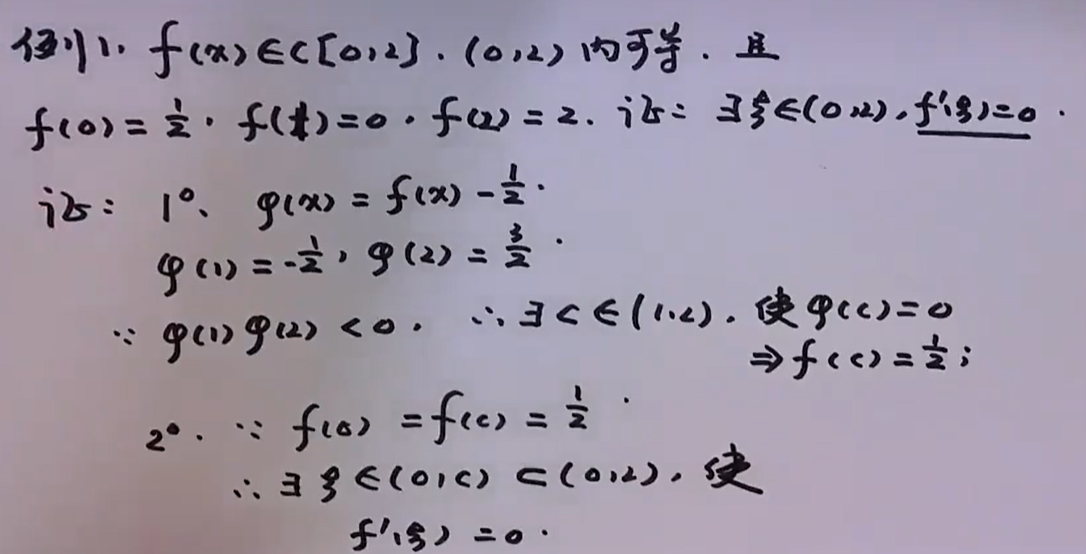 例1. f(x)∈C[0,2]. (0,2)内可导. 且
f(0)=1/2. f(1)=0. f(2)=2. 证: ∃ξ∈(0,2), f'(ξ)=0.
证: 1°、 φ(x)=f(x)-1/2.
φ(1)=-1/2, φ(2)=3/2.
∵ φ(1)φ(2)<0. ∴ ∃c∈(1,2). 使φ(c)=0
⇒f(c)=1/2;
2°. ∵ f(0)=f(c)=1/2.
∴ ∃ξ∈(0,c)⊂(0,2), 使
f'(ξ)=0.